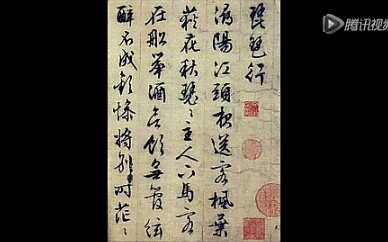 腾讯视频
琵琶行
潯陽江頭夜送客楓葉
荻花秋瑟〻主人下馬客
在船舉酒欲飲無管弦
醉不成歡慘將別時茫〻